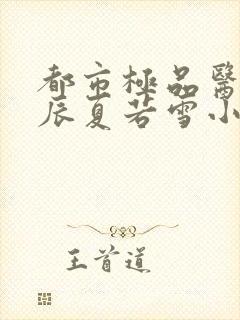 都市極品醫
辰夏若雪小
王首道